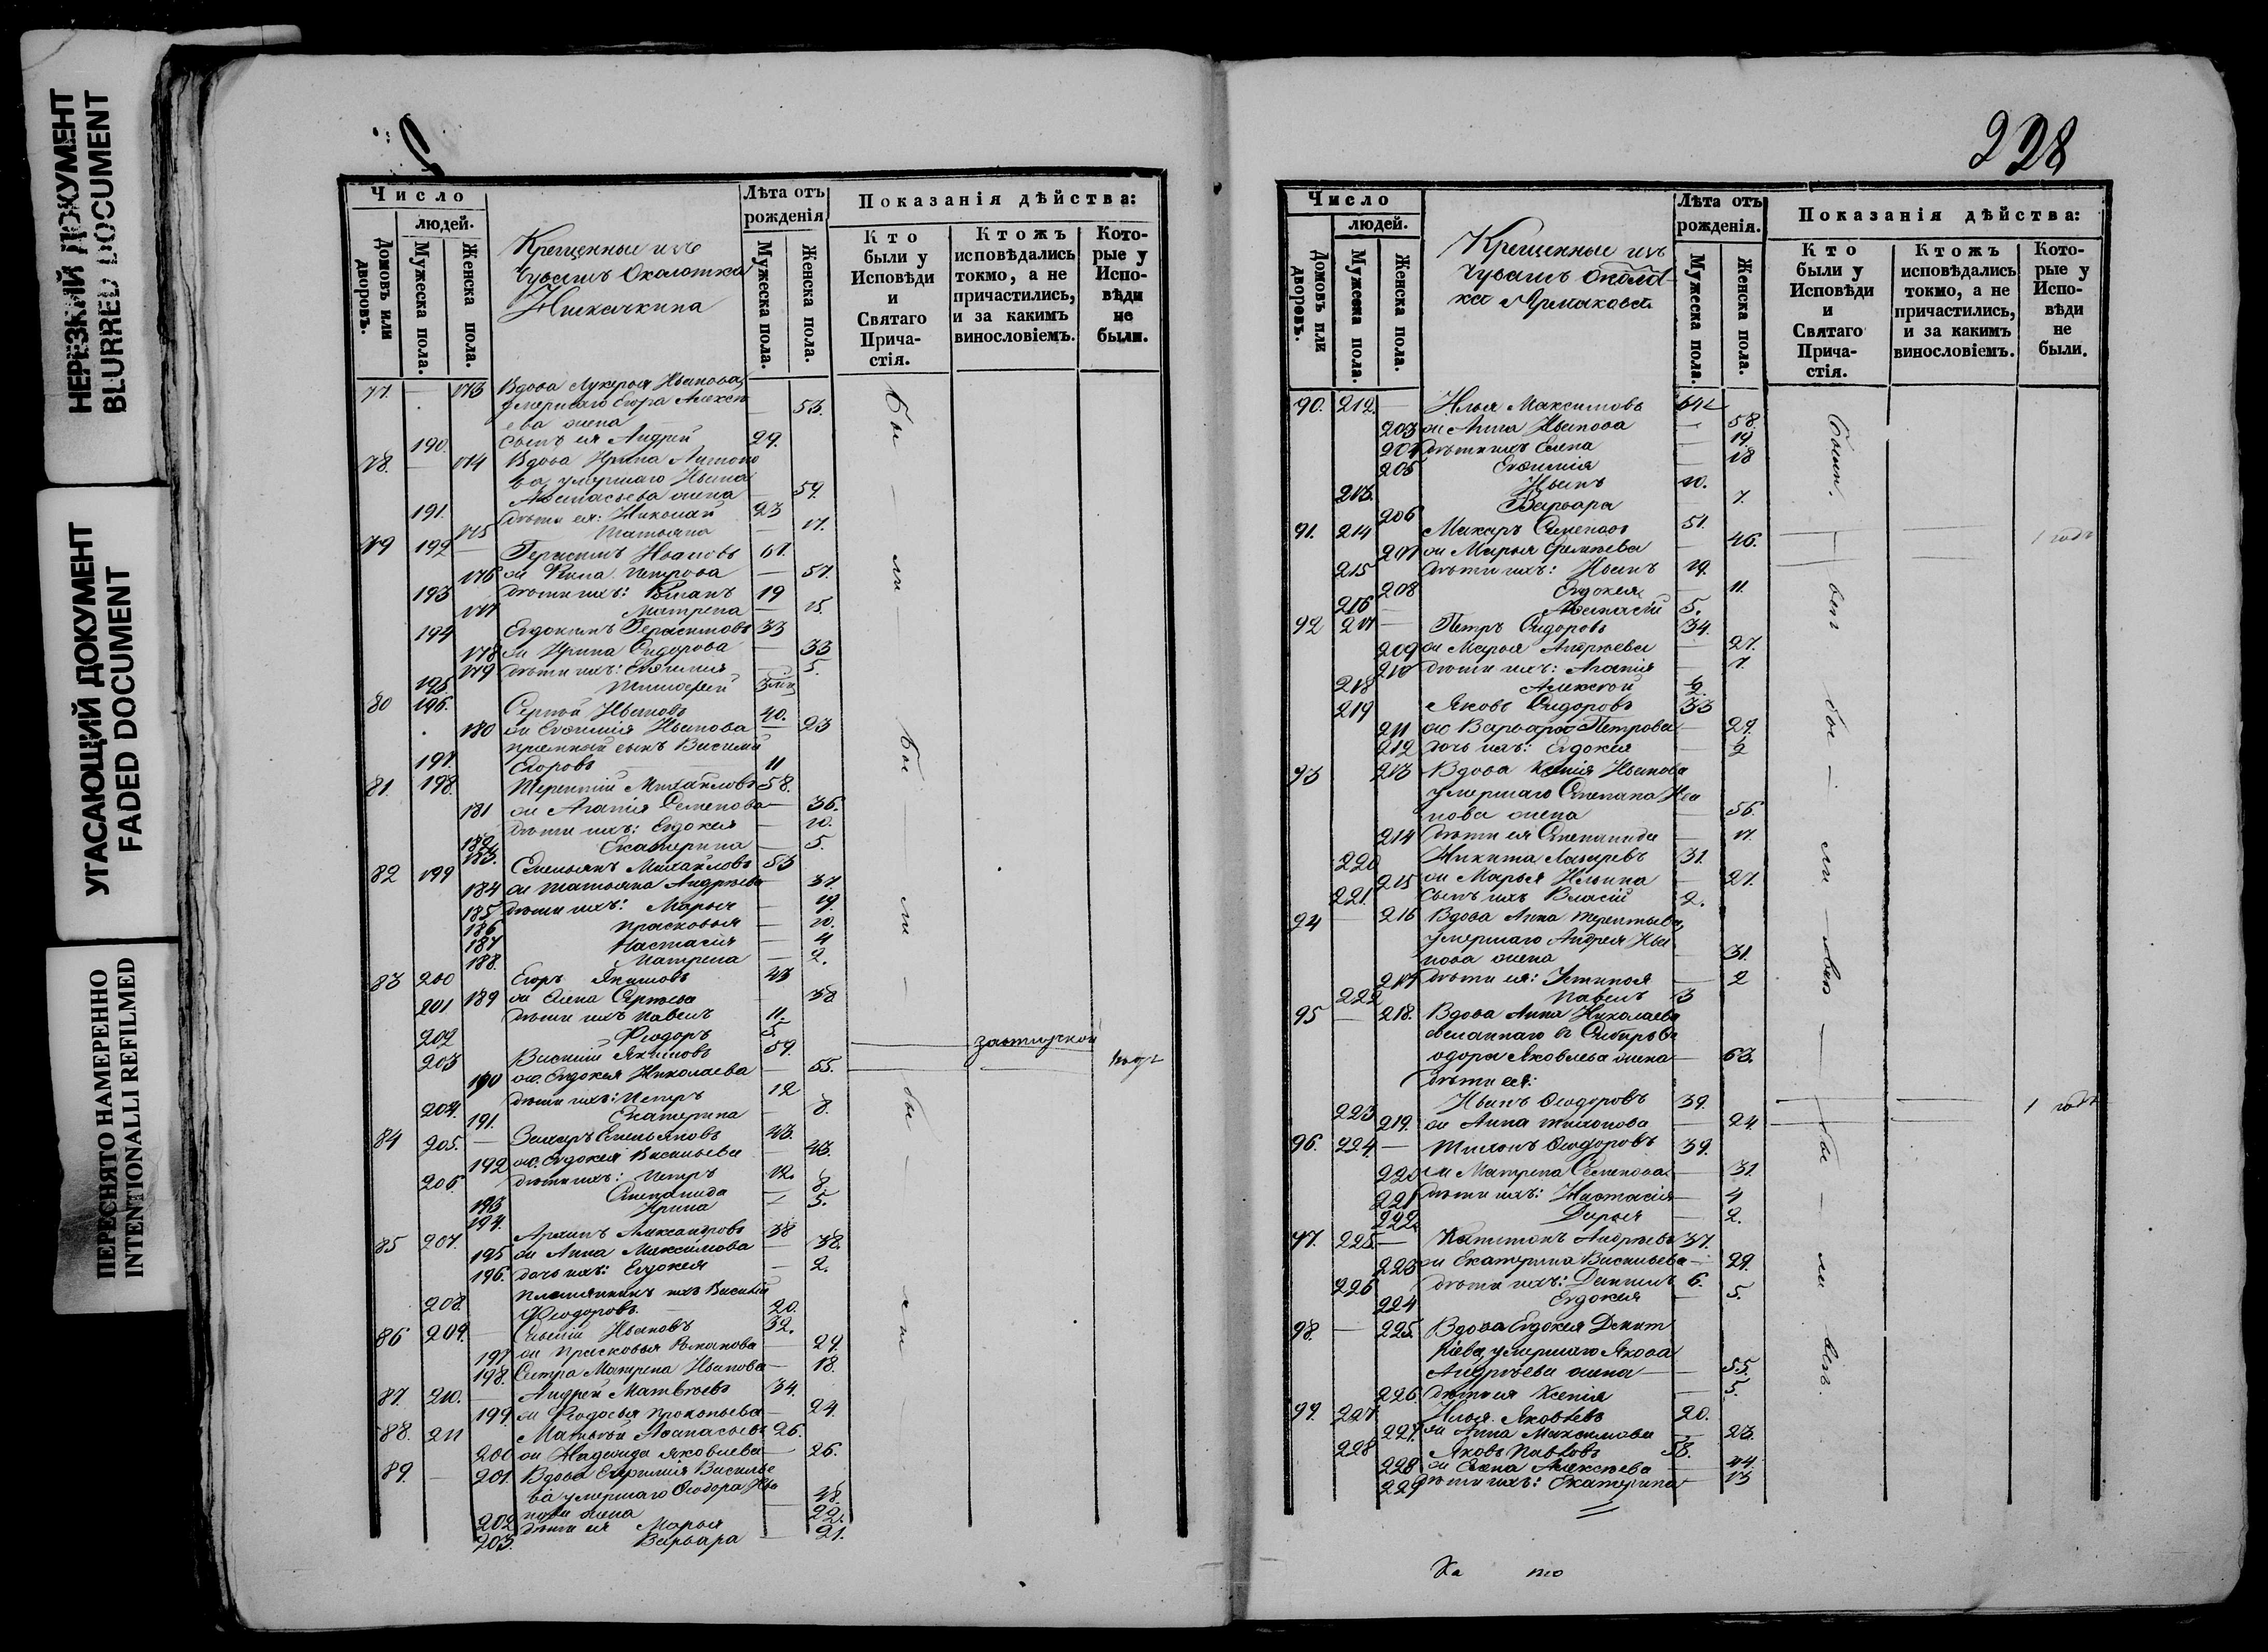 НЕРЕЗКИЙ ДОКУМЕНТ
BLURRED DOCUMENT
УГАСАЮЩИЙ ДОКУМЕНТ
FADED DOCUMENT
ПЕРЕСНЯТО НАМЕРЕННО
INTENTIONALLI REFILMED
Число
людей.
Домовъ или дворовъ.
Мужеска пола.
Женска пола.
Крещенные изъ
Чувашъ Околотка
Лѣта отъ рожденія
Мужеска пола.
Женска пола.
Показанія дѣйства:
Кто были у Исповѣди и Святаго Прича-стія.
Ктожъ исповѣдались токмо, а не причастились, и за какимъ винословіемъ.
Кото-рые у Испо-вѣди не были.
77. — 173 Вдова Лукерья Иванова,
умершаго Егора Алексѣ
ева жена — 53.
190. сынъ ея Андрей 29.
78. — 174 Вдова Ирина Антоно
ва, умершаго Ивана
Афанасьева жена — 59.
191. дѣти ея: Николай 23
175 Татьяна — 17.
79 192 — Герасимъ Ивановъ 61.
176 ж Петрова — 57.
193 дѣти ихъ: Романъ 19
177 Матрена — 15.
194 Евдокимъ Герасимовъ 33
178 ж Ирина Сидорова — 33
179 дѣти ихъ: Евфимия — 5.
195 Тимофей
80 196. Сергѣй Ивановъ 40.
180 ж Евфимія Иванова — 23
приемный сынъ Василий
197. Егоровъ 11
81. 198. Терентій Михайловъ 58.
181 ж Агапія Семенова — 36.
182 дѣти ихъ: Евдокея — 10.
183. Екатерина — 5.
82 199 Емельянъ Михайловъ 53
184 ж Татьяна Андреева — 37.
185 дѣти ихъ: Марья — 19.
186 Прасковья — 10.
187 Настасія — 4
188. Матрена — 2.
83 200 Егоръ Якимовъ 43
189 ж Елена Сергѣева — 38
201 дѣти ихъ Павелъ 11.
202 Феодоръ 5.
203 Василій Якимовъ 59.
190 ж. Евдокея Николаева — 55.
204. дѣти ихъ: Петръ 12
191. Екатерина — 8.
84 205. — Захаръ Емельяновъ 43.
192 ж. Евдокея Васильева — 43.
206. дѣти ихъ: Петръ 12.
193 Степанида — 8.
194. Ирина — 5.
85 207. Архипъ Александровъ 38
195 ж Анна Максимова — 38.
196. дочь ихъ: Евдокея — 2.
племянникъ ихъ Василій
208. Феодоровъ. 20.
86 209. — Ивановъ 32.
197 ж Прасковья Романова — 29.
198. Сестра Матрена Иванова — 18.
87. 210. — Андрей Матвѣевъ 34.
199. ж Феодосья Прокопьева — 24.
88. 211 Матвѣй Афанасьевъ 26.
200 ж Надежда Яковлева — 26.
89. — 201. Вдова Евфимія Василье
ва умершаго Феодора Ива
нова жена — 48.
202 дѣти ея Марья — 22.
203. Варвара — 21.
бы — ли — бы — ли — бы — ли
228
Число
людей.
Домовъ или дворовъ.
Мужеска пола.
Женска пола.
Крещенные изъ
Чувашъ Околот-
ка Ярмакова
Лѣта отъ рожденія.
Мужеска пола.
Женска пола.
Показанія дѣйства:
Кто были у Исповѣди и Святаго Прича-стія.
Ктожъ исповѣдались токмо, а не причастились, и за какимъ винословіемъ.
Кото-рые у Испо-вѣди не были.
90. 212. — Илья Максимовъ
203 ж Анна Иванова — 58.
204 дѣти ихъ Елена — 19.
205 Евфимія — 18
213. Иванъ 10.
206 Варвара 7.
91. 214 Макаръ Семеновъ 51.
207 ж Марья — 46. 1 годъ
215 дѣти ихъ: Иванъ 19.
208 Евдокея — 11.
216 Афанасій 5.
92 217 — Петръ Сидоровъ 34.
209 ж Марья Андреева — 27.
210 дѣти ихъ: Агапія — 7.
218 Алексѣй 2.
219 Яковъ Сидоровъ 33
211 ж Варвара Петрова — 29.
212 дочь ихъ: Евдокея — 2
93 213 Вдова Ксенія Иванова
умершаго Степана Ива
нова жена — 56.
214 дѣти ея Степанида — 17.
220 Никита Лазаревъ 31.
215 ж Марья Ильина — 27.
221. сынъ ихъ Власій 2.
94 — 216 Вдова Анна Терентьева,
умершаго Андрея Ива
нова жена — 31.
217 дѣти ея: Устинья — 2
222 Павелъ 3
95 — 218. Вдова Анна Николаева
сосланнаго въ Сибирь Фе
одора Яковлева жена — 63.
дѣти ея:
223 Иванъ Феодоровъ 39. 1 годъ
219. ж Анна Тихонова — 24.
96. 224. — Тихонъ Феодоровъ 39.
220 ж Матрена Семенова — 31.
221 дѣти ихъ: Настасія — 4
222. Дарья — 2.
97. 225. — Капитонъ Андреевъ 37.
223 ж Екатерина Васильева — 29.
226 дѣти ихъ: Даниилъ 6.
224 Евдокея — 5.
98. — 225. Вдова Евдокея Демит
ріева, умершаго Якова
Андреева жена — 55.
226. дѣти ея Ксенія — 5.
99. 227. Илья Яковлевъ 20.
227. ж Анна Максимова — 23.
228 Яковъ Павловъ 58.
228 ж Елена Алексѣева — 44.
229 дѣти ихъ: Екатерина — 13